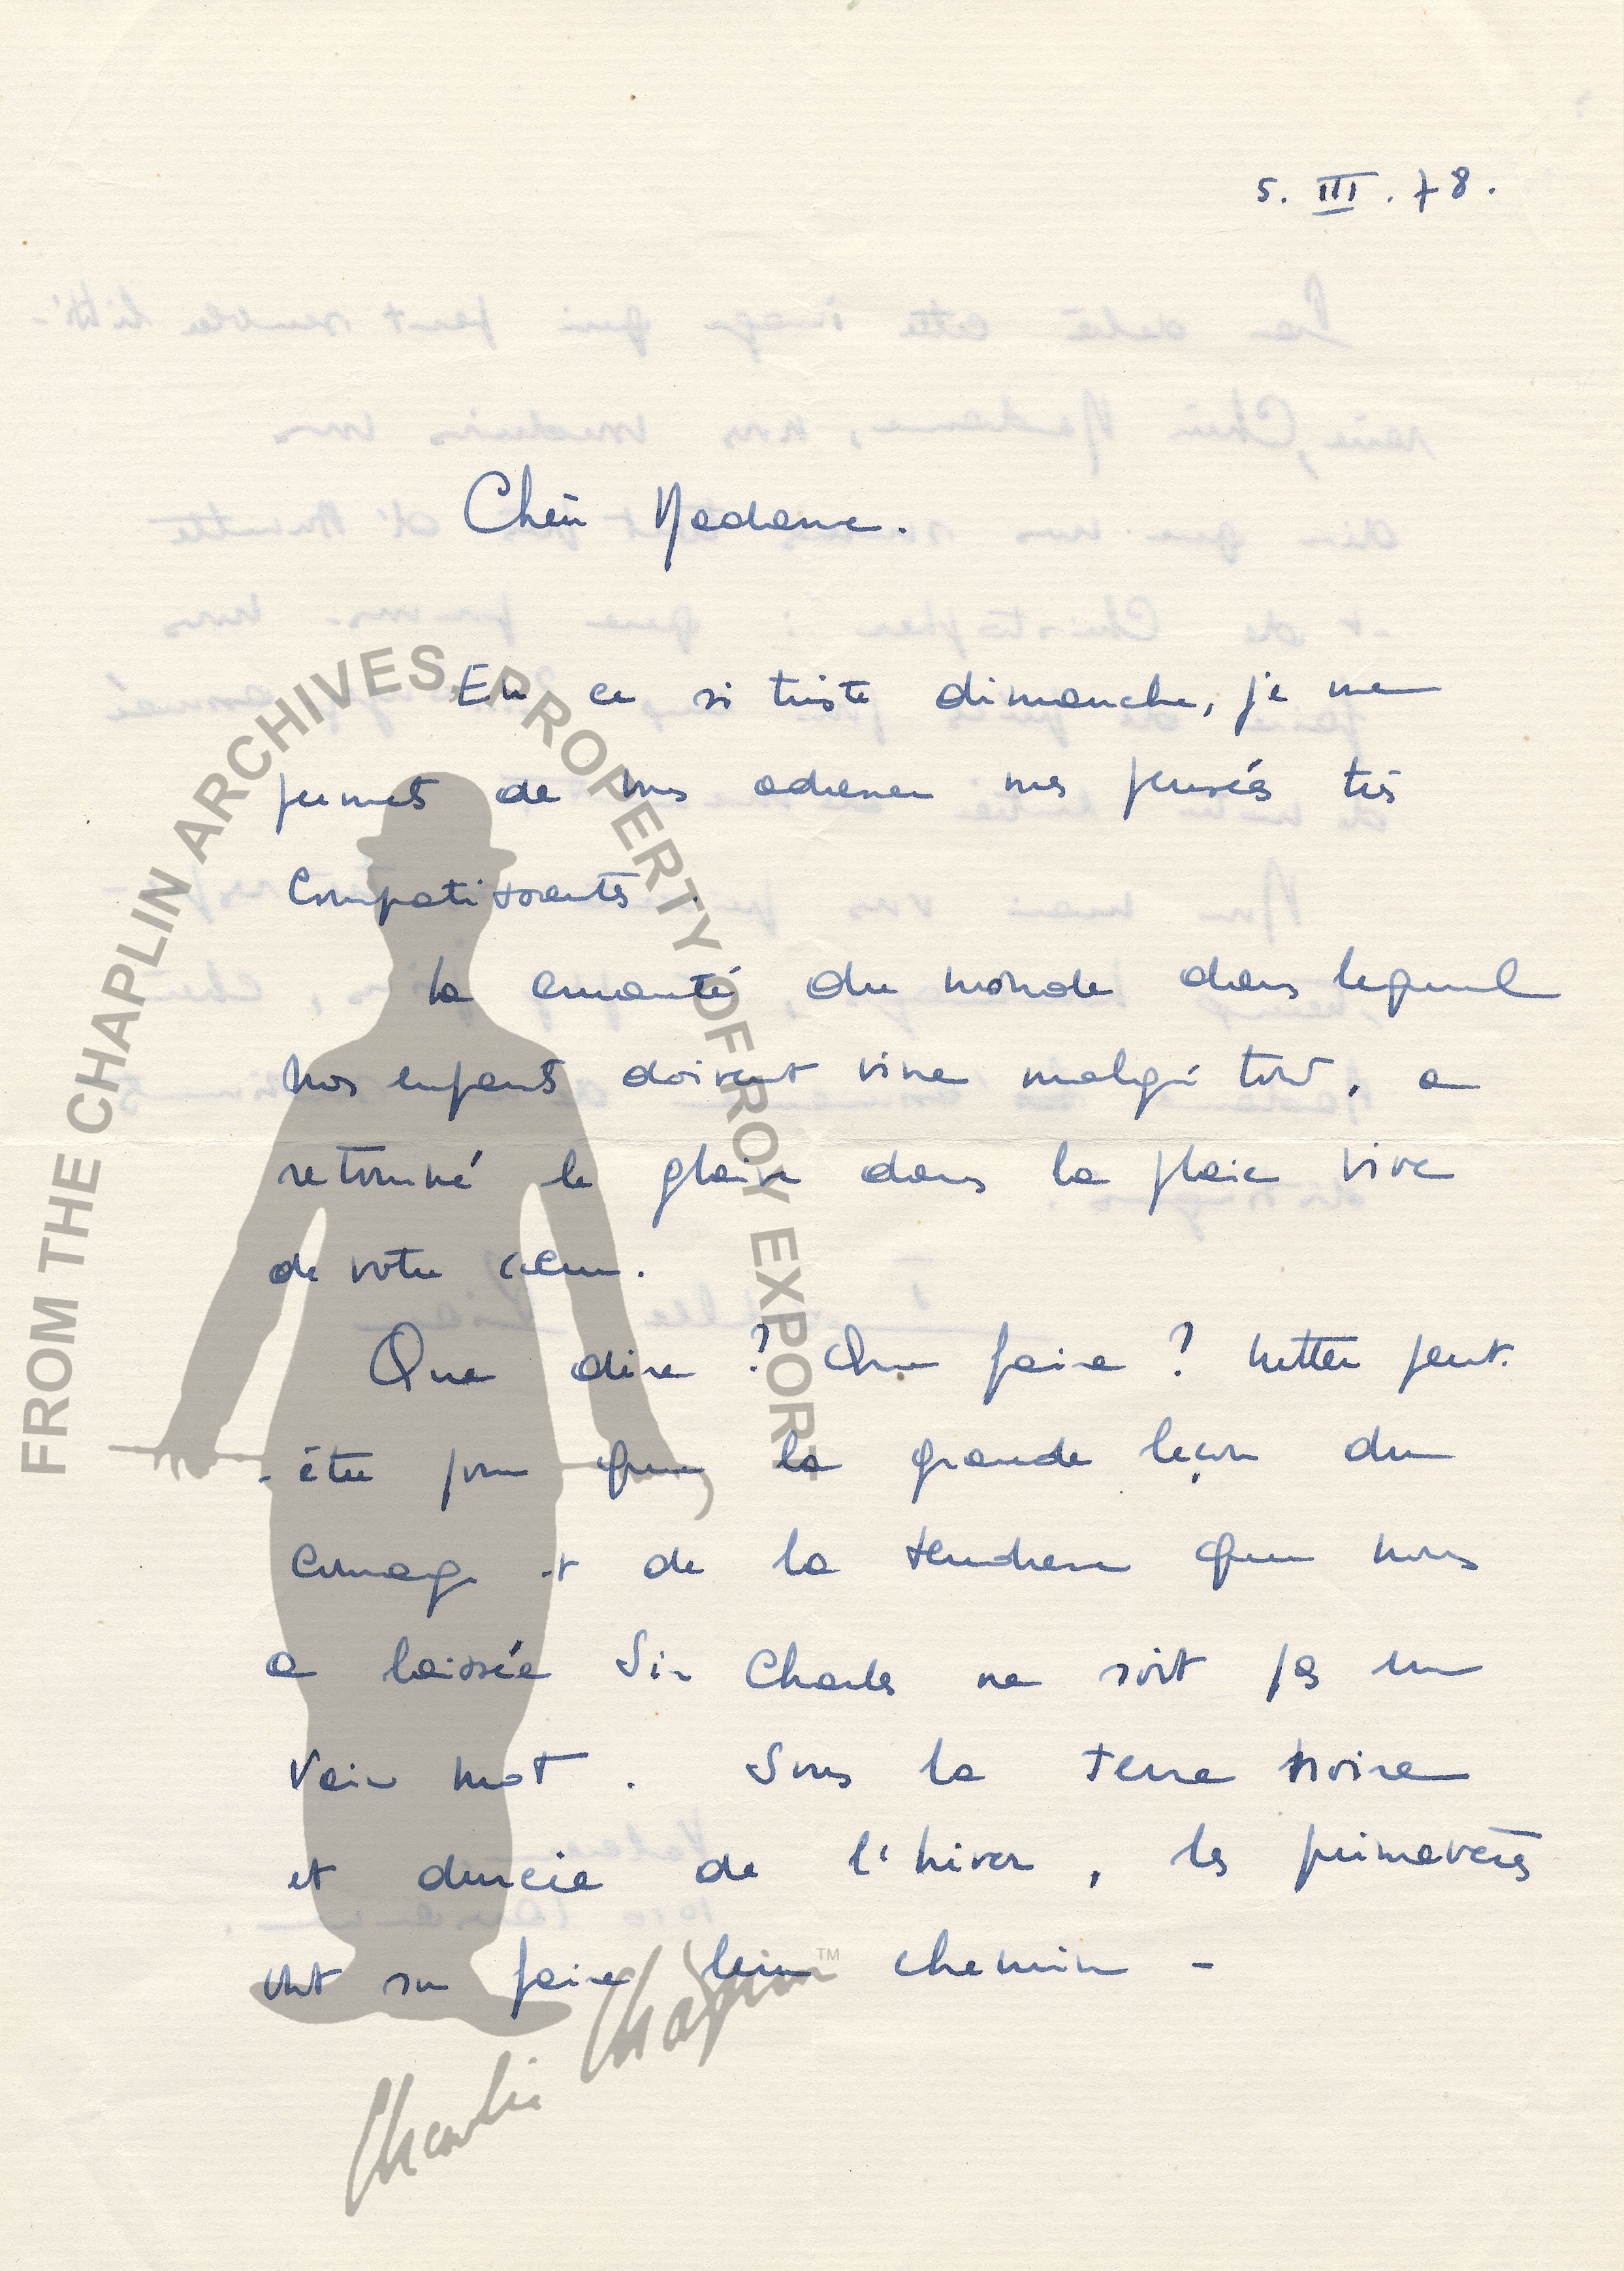 5. III. 78.
Chère Madame.
En ce si triste dimanche, je me
permets de vous adresser mes pensées très
compatissantes.
La cruauté du monde dans lequel
nos enfants doivent vivre malgré tout, a
retourné le glaive dans la plaie vive
de votre cœur.
Que dire ? Que faire ? Lutter peut-
-être pour que la grande leçon du
courage et de la tendresse que nous
a laissée Sir Charles ne soit pas un
vain mot. Sous la terre noire
et durcie de l'hiver, les primevères
ont su faire leur chemin -
FROM THE CHAPLIN ARCHIVES, PROPERTY OF ROY EXPORT
Charlie Chaplin™